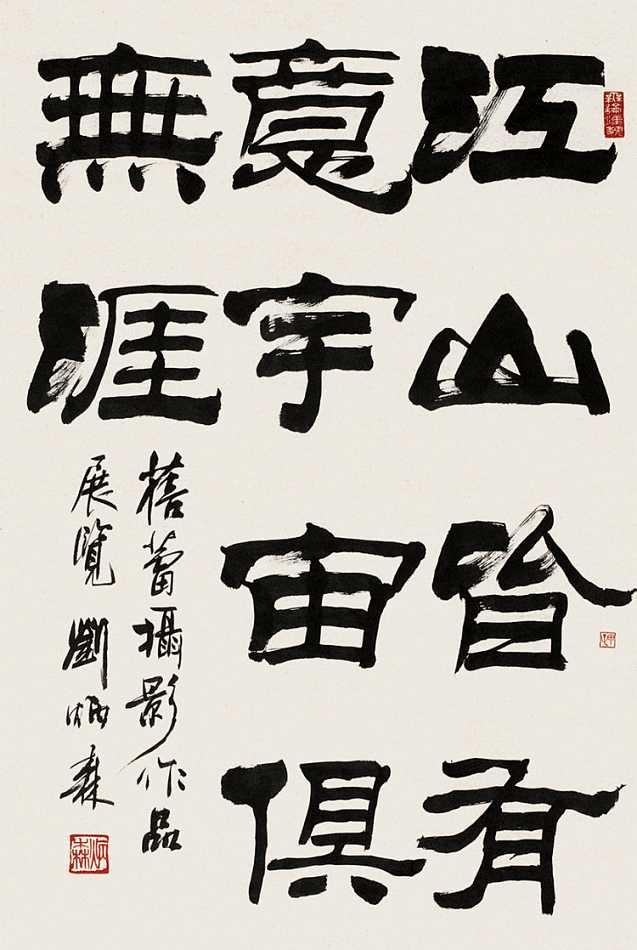 江山皆有
意宇宙俱
無涯
蓓蕾攝影作品
展覽 劉炳森
炳森